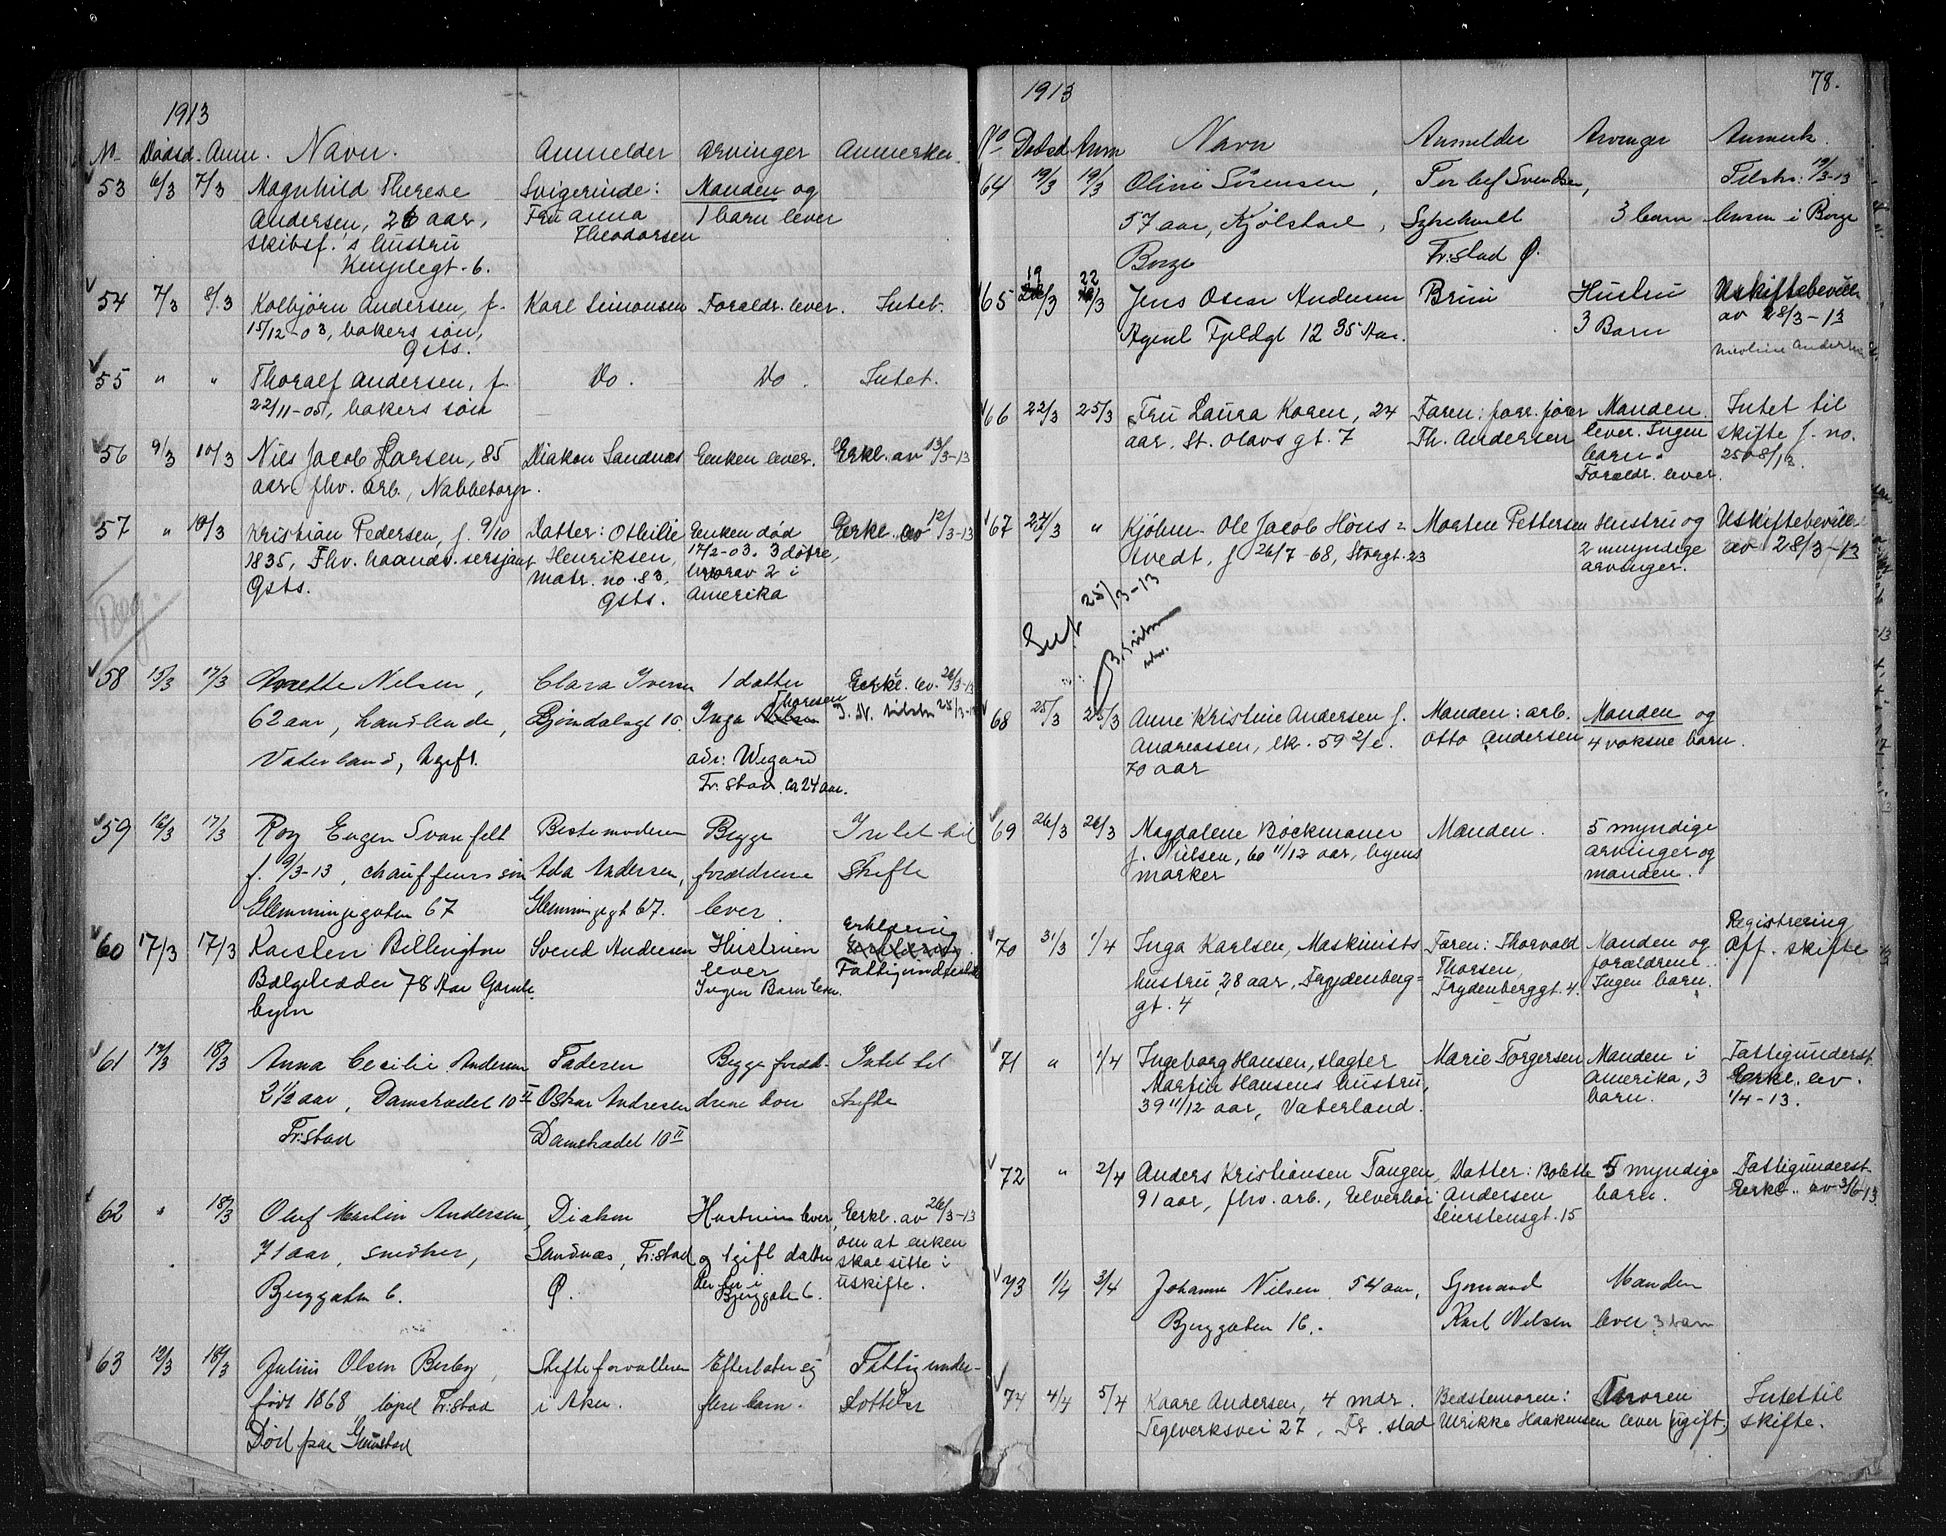 1913
No Dødsd. Anm. Navn. Anmelder Arvinger Anmerkn.
53 6/3 7/3 Magnhild Therese Svigerinde: Manden og
Andersen, 26 aar, Fru Anna 1 barn lever
skibsf.'s hustru Theodorsen
Kirkegt. 6.
54 7/3 8/3 Kolbjørn Andersen, f. Karl Simonsen Foraldr. lever. Intet.
15/12-03, bakers søn,
Gsts.
55 " " Thoralf Andersen, f. Do. Do. Intet.
22/11-05, bakers søn
56 9/3 10/3 Nils Jacob Larsen, 85 Diakon Sandnæs Enken lever. Erkl. av 13/3-13
aar fhv. arb., Nabbetorp.
57 " 10/3 Kristian Pedersen, f. 9/10 Datter: Othilie Enken død Erkl. av 12/3-13
1835, Fhv. haandv. sersjant Henriksen, 17/2-03. 3 døtre,
Gsts. matr. no. 83, hvorav 2 i
Gsts. Amerika
58 15/3 17/3 Anette Nilsen, Clara Iversen 1 datter Erkl. av 26/3-13
62 aar, handlende, Bjørndalsgt 10 Inga Thoresen
Vaterland, Ugift. adr: Wegard
Fr.stad. ca 24 aar.
59 16/3 17/3 Roy Eugen Svanfelt Bestemoderen Begge Intet til
f. 9/3-13, chauffeurs søn Ada Andersen, forældrene Skifte
Glemmingegaten 67 Glemmingegt 67. lever.
60 17/3 17/3 Karsten Billington Svend Andersen Hustruen Erklæring
Bælgetræder 78 Aar Gamle- lever Fattigundstøttet
byen Ingen Barn lever.
61 17/3 18/3 Anna Cecilie Andersen Faderen Begge foræl- Intet til
2 1/2 aar, Damstrædet 10 II Oskar Andresen drene lever Skifte
Fr:stad Damstrædet 10 II
62 " 18/3 Oluf Martin Andersen, Diakon Hustruen lever, Erkl. av 26/3-13
71 aar, snedker, Sandnæs, Fr:stad og 1 gift datter om at enken
Berggaten 6. Ø. Der bor i skal sitte i
Berggate 6. uskifte.
63 12/3 18/3 Julius Olsen Berby, Skifteforvalteren Efterlater ej Fattigunder-
født 1868 i Aker. flere barn. støttelse
Død paa Gaustad
1913
78.
No Dødsd. Anm Navn Anmelder Arvinger Anmerk.
64 19/3 19/3 Oline Sørensen, Torlef Svendsen, Tilskr: 19/3-13
57 aar, Kjølstad, Sykehuset 3 barn lensm i Borge
Borge Fr:stad Ø.
65 19/3 22/3 Jens Oscar Andersen Bruun Hustru Uskiftebevill.
Agent Fjeldgt 12 35 Aar. 3 Barn av 28/3-13
Nicoline Andersen
66 22/3 25/3 Fru Laura Koren, 24 Faren: forr. fører Manden Intet til
aar. St. Olavs gt. 7 Th. Andersen lever. Ingen skifte f. no.
barn.
Foraldr. lever.
67 24/3 " Kjøbm. Ole Jacob Høns- Morten Pettersen Hustru og Uskiftebevill.
tvedt, f 26/7-68, Storgt. 23 2 umyndige av 28/3-13
arvinger.
25/3-13
68 25/3 25/3 Anne Kristine Andersen f. Manden: arb. Manden og
Andreassen, lk. 59 Otto Andersen 4 voksne barn.
70 aar
69 26/3 26/3 Magdalene Bockmann Manden. 5 myndige
f. Nielsen, 60 11/12 aar, byens arvinger og
marker manden.
70 31/3 1/4 Inga Karlsen, Maskinists Faren: Thorvald Manden og Registrering
hustru, 28 aar, Frydenberg- Thorsen, forældrene. Off. skifte
gt. 4 Frydenberggt. 4. Ingen barn.
71 " 1/4 Ingeborg Hansen, slagter Marie Torgersen Manden i Fattigunderst.
Martin Hansens hustru, Amerika, 3 Erkl. lev.
39 11/12 aar, Vaterland. barn. 1/4-13.
72 " 2/4 Anders Kristiansen Tangen, Datter: Bolette 5 myndige Fattigunderst.
91 aar, fhv. arb., Elverhøi Andersen barn. Erkl. av 3/6-13
Seierstensgt. 15
73 1/4 3/4 Johanne Nilsen 54 aar, Gjørmand Manden
Berggaten 16. Karl Nilsen lever 3 barn
74 4/4 5/4 Kaare Andersen, 4 mdr. Bedstemoren: Moren Intet til
Teglverksvei 27, Fr.stad Ulrikke Haakensen lever (ugift) skifte.